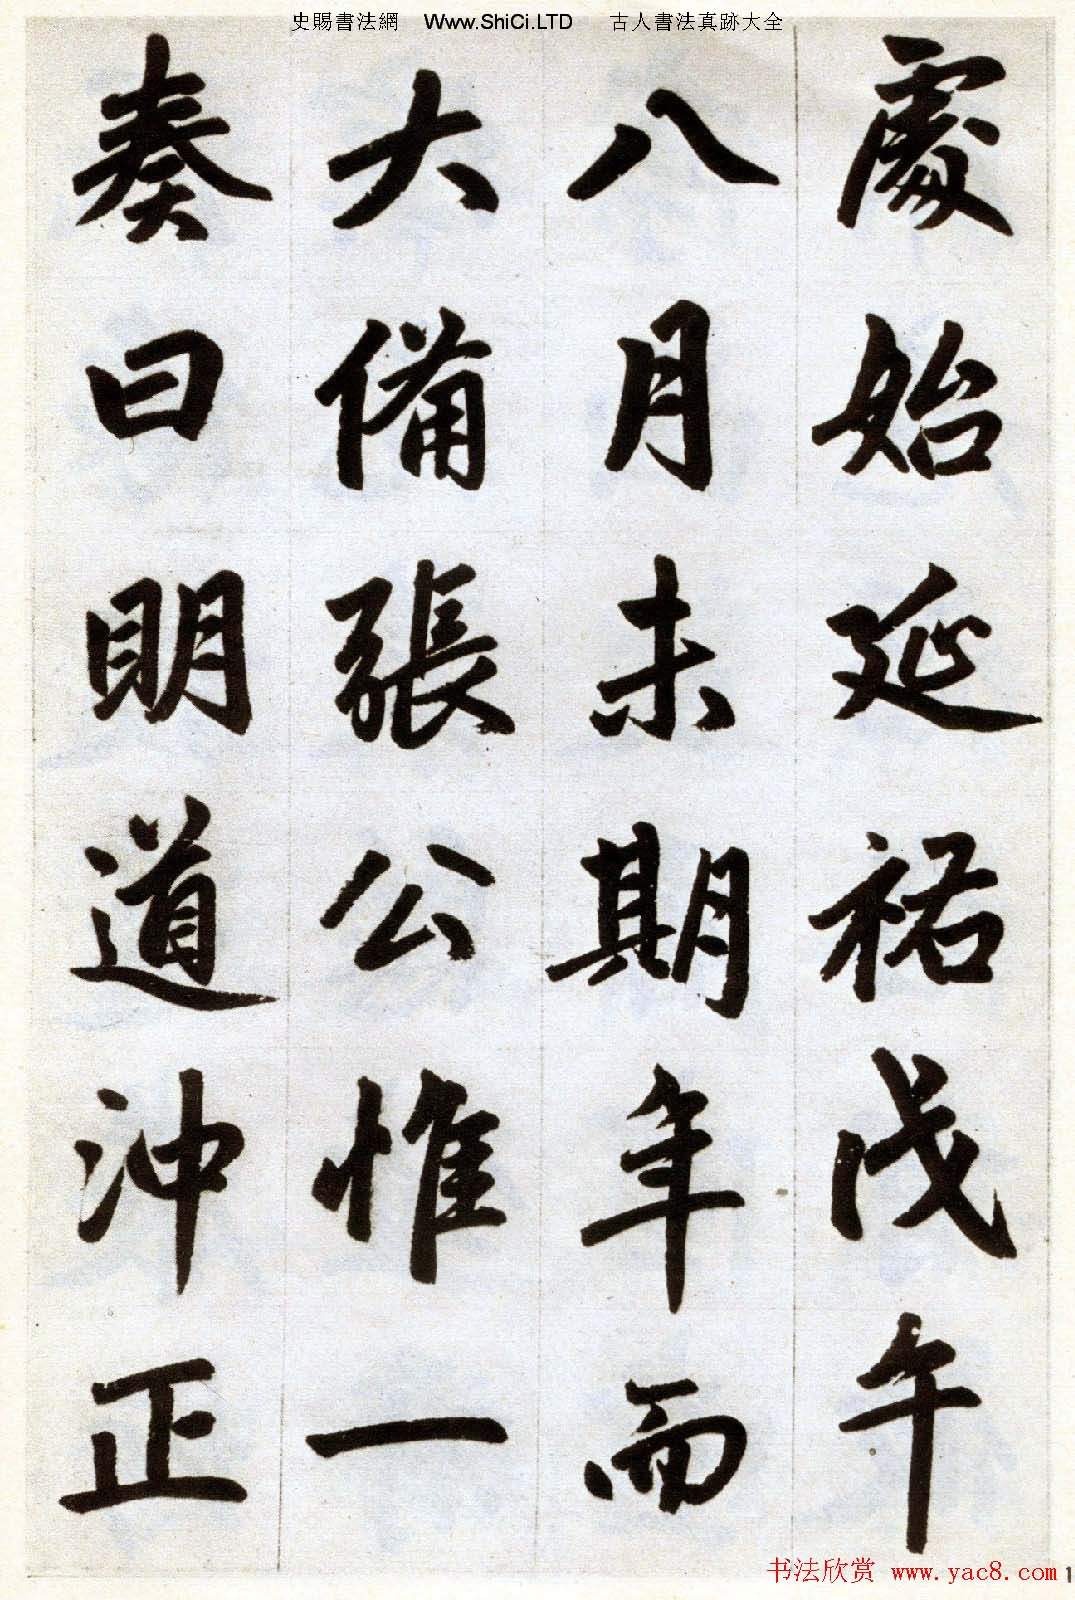 史賜書法網 Www.ShiCi.LTD 古人書法真跡大全
處始延祐戊午
八月未期年而
大備張公惟一
奏曰明道沖正
书法欣赏 www.yac8.com 1